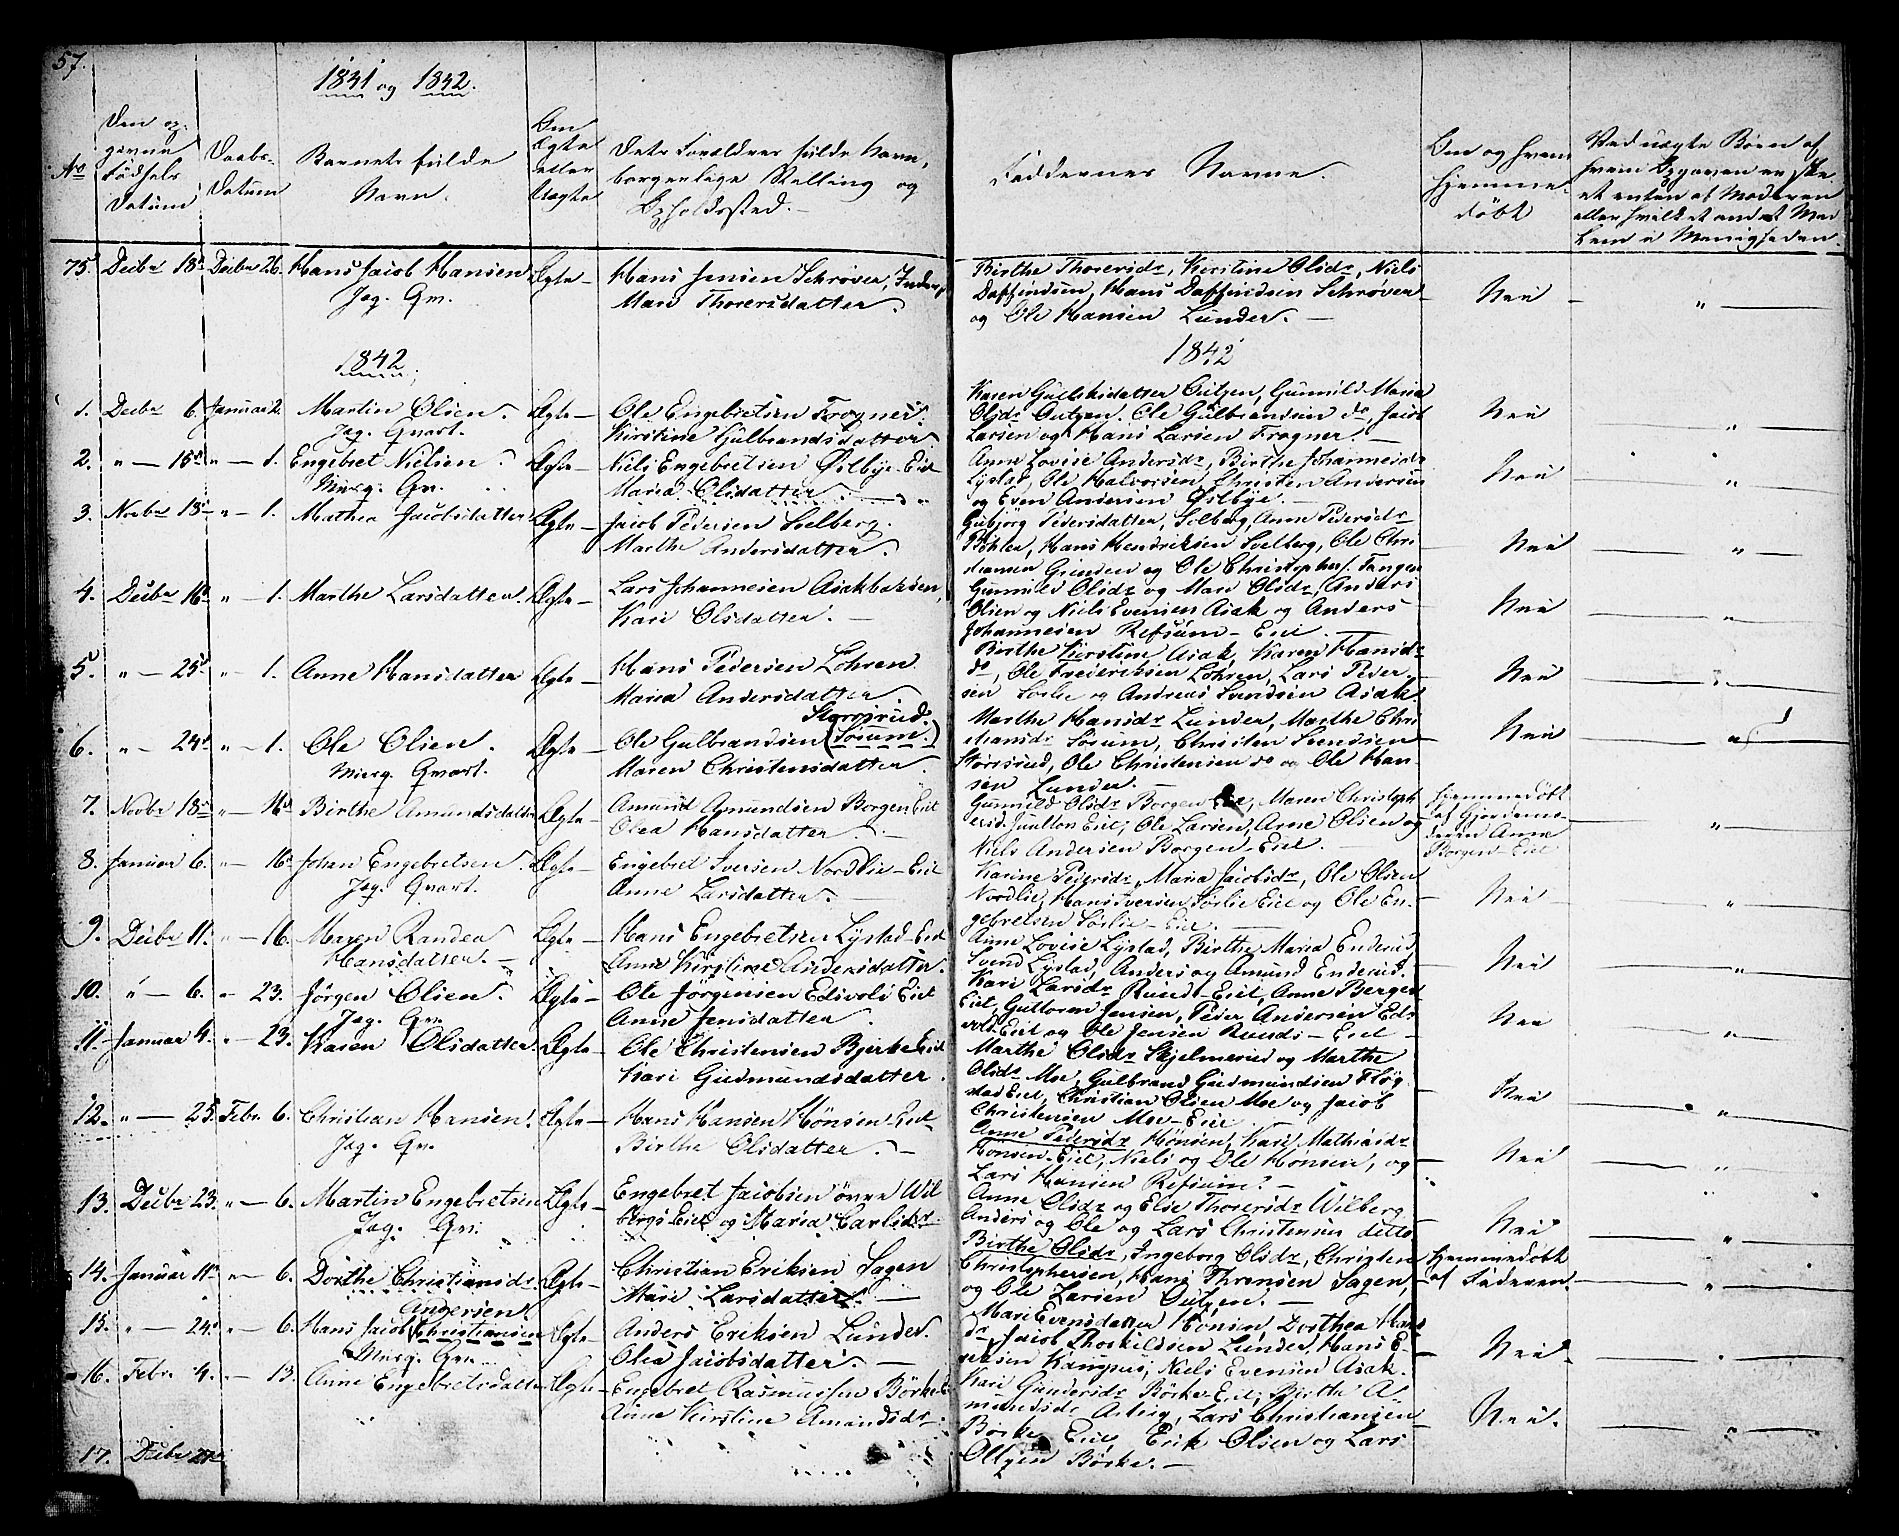 57.
1841 og 1842.
No
Den op-
givne
Fødsels
Datum
Daabs-
Datum
Barnets fulde
Navn.
Om
Ægte
eller
Uægte
Dets Forældres fulde Navn,
borgerlige Stilling og
Opholdssted.
Faddernes Navne.
Om og hvem
hjemme-
døbt
Ved uægte Børn af
hvem Opgaven er ske
et enten af Moderen
eller hvilket andet Med
lem i Menigheden.
75. Decbr 18. Decbr 26. Hans Jacob Hansen Ægte - Hans Jensen Schrøver,
Jag. Qv. Mari Thorersdatter.
Birthe Thorersdr, Kirstine Olsdr, Niels
Daffindsen, Hans Daffindsen Schrøver
og Ole Hansen Lunder. -
Nei - "
1842
1842
1. Decbr 6. Januar 2. Martin Olsen. Ægte - Ole Engebretsen Frogner.
Jag. Qvart. Kirstine Gulbrandsdatter
Karen Gulliksdatter Outzen, Gunnild Maria
Olsdr Outzen. Ole Gulbrandsen do, Jacob
Larsen og Hans Larsen Frogner. -
Nei "
2. " - 15 " - 1. Engebret Nielsen. Ægte - Niels Engebretsen Østbye-Eiet
Mierg. Qv. Maria Olsdatter.
Anne Lovise Andersdr, Birthe Johannesdr
Lystad, Ole Halvorsen, Christen Andersen
og Even Andersen Østbye. -
Nei "
3. Novbr 18 " - 1. Mathea Jacobsdatter Ægte - Jacob Pedersen Solberg.
Marthe Andersdatter.
Gubjörg Pedersdatter, Solberg, Anne Pedersdr
Böhler, Hans Hendriksen Solberg, Ole Chri
stiansen Grinden og Ole Christophers. Tangen
Nei "
4. Decbr 16 " - 1. Marthe Larsdatter. Ægte - Lars Johannesen Asakbakken,
Kari Olsdatter. -
Gunnild Olsdr og Mari Olsdr, Anders
Olsen og Niels Evensen Asak og Anders
Johannesen Refsum - Eiet.
Nei "
5. " - 25 " - 1. Anne Hansdatter Ægte - Hans Pedersen Löhren
Maria Andersdatter.
Birthe Kirstine Asak, Karen Hansdr
do, Ole Fredericksen Löhren, Lars Peder-
sen Sørlie og Andreas Svendsen Asak.
Nei "
6. " - 24 " - 1. Ole Olsen. Ægte - Ole Gulbrandsen (Sörum.)
Storsrud.
Mierg. Qvart. Maren Christensdatter.
Marthe Hansdr Lunder, Marthe Chri
stiansdr Sørum, Christen Svendsen
Storsrud, Ole Christensen do og Ole Han-
sen Lunder.
Nei "
7. Novbr 18 " - 16 Birthe Amundsdatter Ægte - Amund Amundsen Borgen Eiet
Olea Hansdatter.
Gunnild Olsdr Borgen Eie, Maren Christoph
ersd. Eiet, Ole Larsen, Arne Olsen og
Niels Andersen Borgen - Eiet.
Hjemmedöbt
af Gjordemo-
deren Anne
Borgen - Eiet
"
8. Januar 6. " - 16 Johan Engebretsen. Ægte - Engebret Iversen Nordlie - Eiet
Jag. Qvart. Anne Larsdatter. -
Karine Pedersdr, Maria Jacobsdr, Ole Olsen
Nordlie, Hans Iversen Sørlie Eiet og Ole En-
gebretsen Sørlie - Eiet.
Nei "
9. Decbr 11. " - 16. Maren Randea Ægte - Hans Engebretsen Lystad - Eiet
Hansdatter. - Anne Kirstine Andersdatter.
Anne Lovise Lystad, Birthe Maria Enderud
Svend Lystad, Anders og Amund Enderud.
Nei "
10. " - 6. " 23. Jörgen Olsen. Ægte - Ole Jörgensen Edsvold Eiet
Jag. Qv. Anne Jensdatter.
Kari Larsdr Ruud - Eiet, Anne Bergers
Eiet, Guttorm Jensen, Peder Andersen Eds
vold Eiet og Ole Jensen Ruuds - Eiet
Nei "
11. Januar 4. " 23. Karen Olsdatter. Ægte - Ole Christensen Bjerke Eiet
Kari Gudmundsdatter.
Marthe Olsdr Skjelmerud og Marthe
Olsdr Moe, Gulbrand Gudmundsen Fløg
stad Eiet, Christian Olsen Moe og Jacob
Christensen Moe - Eiet
Nei "
12. " - 25. Febr. 6. Christian Hansen. Ægte - Hans Hansen Hønsen - Eiet
Jag. Qv. Birthe Olsdatter. -
Anne Pedersdr Hønsen, Kari Mathiasdr
Hønsen - Eiet, Niels og Ole Hønsen, og
Lars Hansen Refsum. -
Nei "
13. Decbr 23. " - 6. Martin Engebretsen Ægte - Engebret Jacobsen övre Wil
Jag. Qv. bergs Eiet og Maria Carlsdr.
Anne Olsdr og Elie Thorersdr Wilberg
Anders og Ole og Lars Christensen detto
Nei "
14. Januar 11. " - 6. Dorthe Christiansdr. Ægte - Christian Eriksen Sagen
Mari Larsdatter. -
Birthe Olsdr, Ingeborg Olsdr, Christen
Christophersen, Hans Thronsen Sagen,
og Ole Larsen Outzen. -
Hjemmedöbt
af Faderen. "
15. " - 24. " - 6. Hans Jacob (Christiansen Ægte - Anders Eriksen Lunder.
Andersen
Mierg. Qv. Olea Jacobsdatter. -
Mari Evensdatter Hønsen, Dorthea Hans
dr, Jacob Thorkildsen Lunder, Hans E-
riksen Kangrud, Niels Evensen Asak.
Nei "
16. Febr. 4. " - 13. Anne Engebretsdatter Ægte - Engebret Rasmussen Börke
Anne Kirstine Amundsdr.
Kari Gundersdr Börke - Eiet, Birthe A-
mundsdr Lars Christiansen
Börke Eiet, Erik Olsen og Lars
Olsen Börke. -
Nei. "
17. Decbr